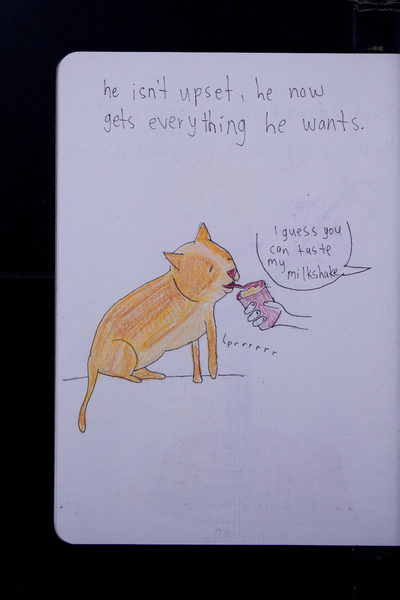 he isn't upset, he now
gets everything he wants.
I guess you
can taste
my
milkshake
prrrrrr